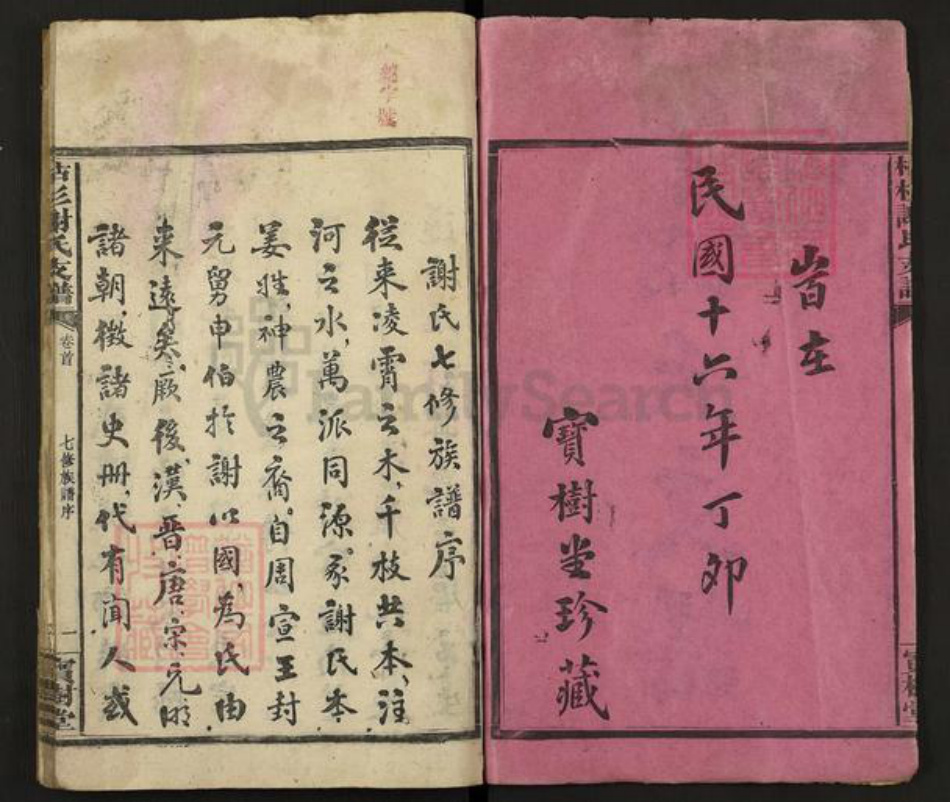 民國十六年丁卯
寶樹堂珍藏
謝氏七修族譜序
從來凌霄之木千枝共本注
河之水萬派同源豕謝氏本
姜姓神農之裔自周宣王封
元舅申伯於謝以國為氏由
來遠矣厥後漢晉唐宋元明
諸朝徵諸史冊代有聞人或
謝氏支譜
卷首
七修族譜序
一
寶樹堂
FamilySearch